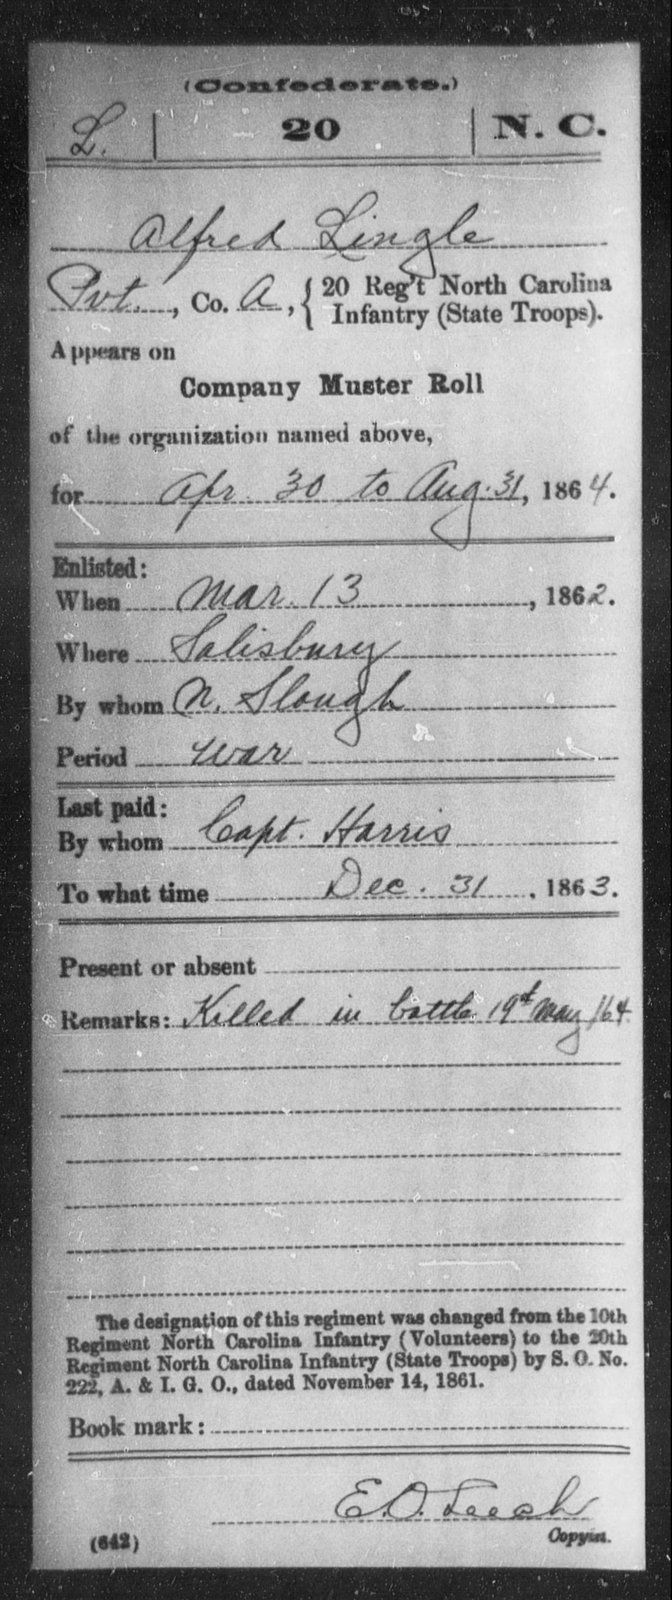 (Confederate.)
L. 20 N. C.
Alfred Lingle
Pvt., Co. A, { 20 Reg't North Carolina
Infantry (State Troops).
Appears on
Company Muster Roll
of the organization named above,
for Apr. 30 to Aug. 31, 1864.
Enlisted:
When Mar. 13, 1862.
Where Salisbury
By whom N. Slough
Period war
Last paid:
By whom Capt. Harris
To what time Dec. 31, 1863.
Present or absent
Remarks: Killed in battle 19th May /64
The designation of this regiment was changed from the 10th
Regiment North Carolina Infantry (Volunteers) to the 20th
Regiment North Carolina Infantry (State Troops) by S. O. No.
222, A. & I. G. O., dated November 14, 1861.
Book mark:
E. D. Leech
(642) Copyist.